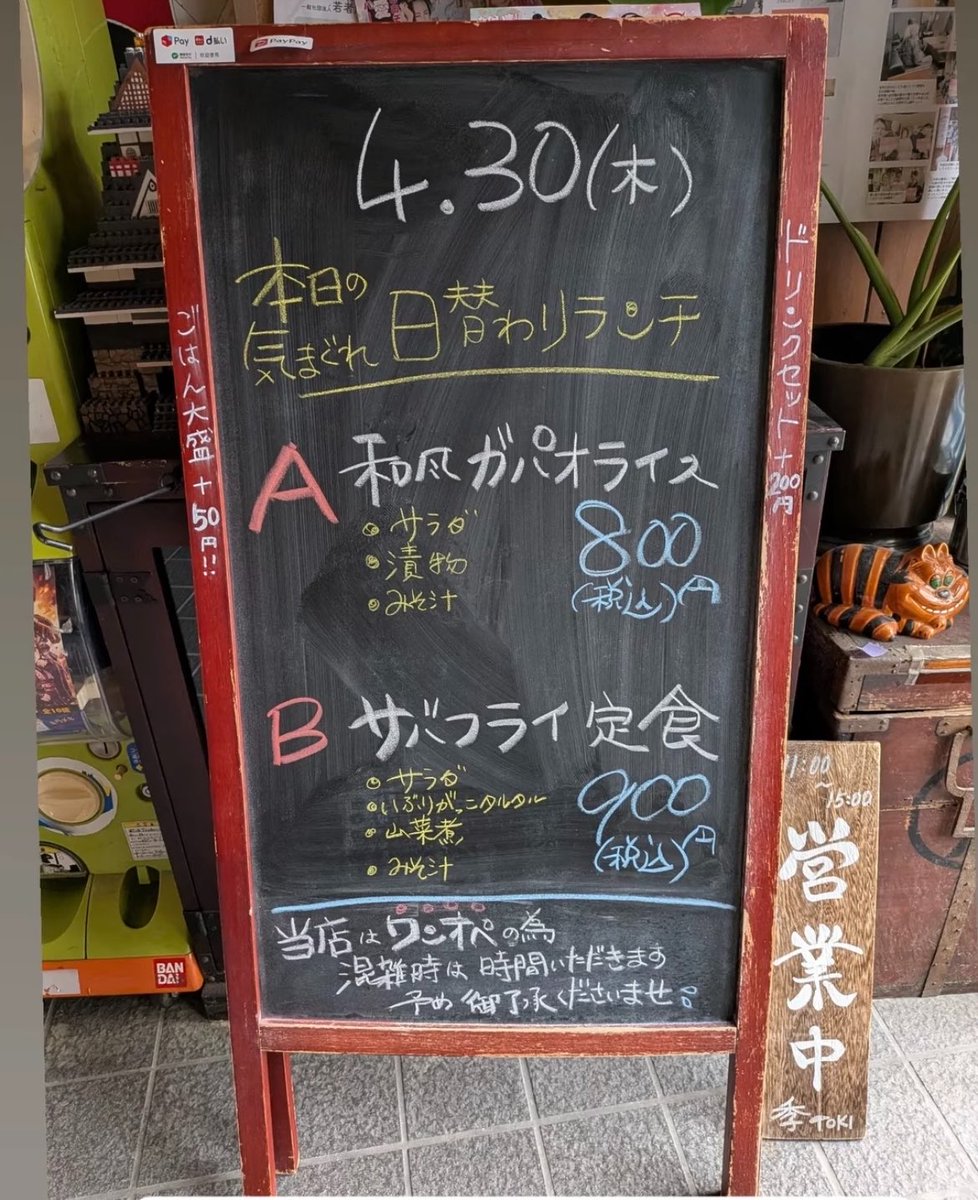 一般社団法人 若者
Pay d払い
PayPay
4.30(木)
本日の
気まぐれ 日替わりランチ
A 和風ガパオライス
・サラダ
・漬物
・みそ汁
800円
(税込)
B サバフライ定食
・サラダ
・いぶりがっこタルタル
・山菜煮
・みそ汁
900円
(税込)
当店はワンオペの為
混雑時は時間いただきます
予め御了承くださいませ
ごはん大盛+50円!!
ドリンクセット+200円
11:00
~
15:00
営業中
季 TOKI
BAN
DAI
全10種